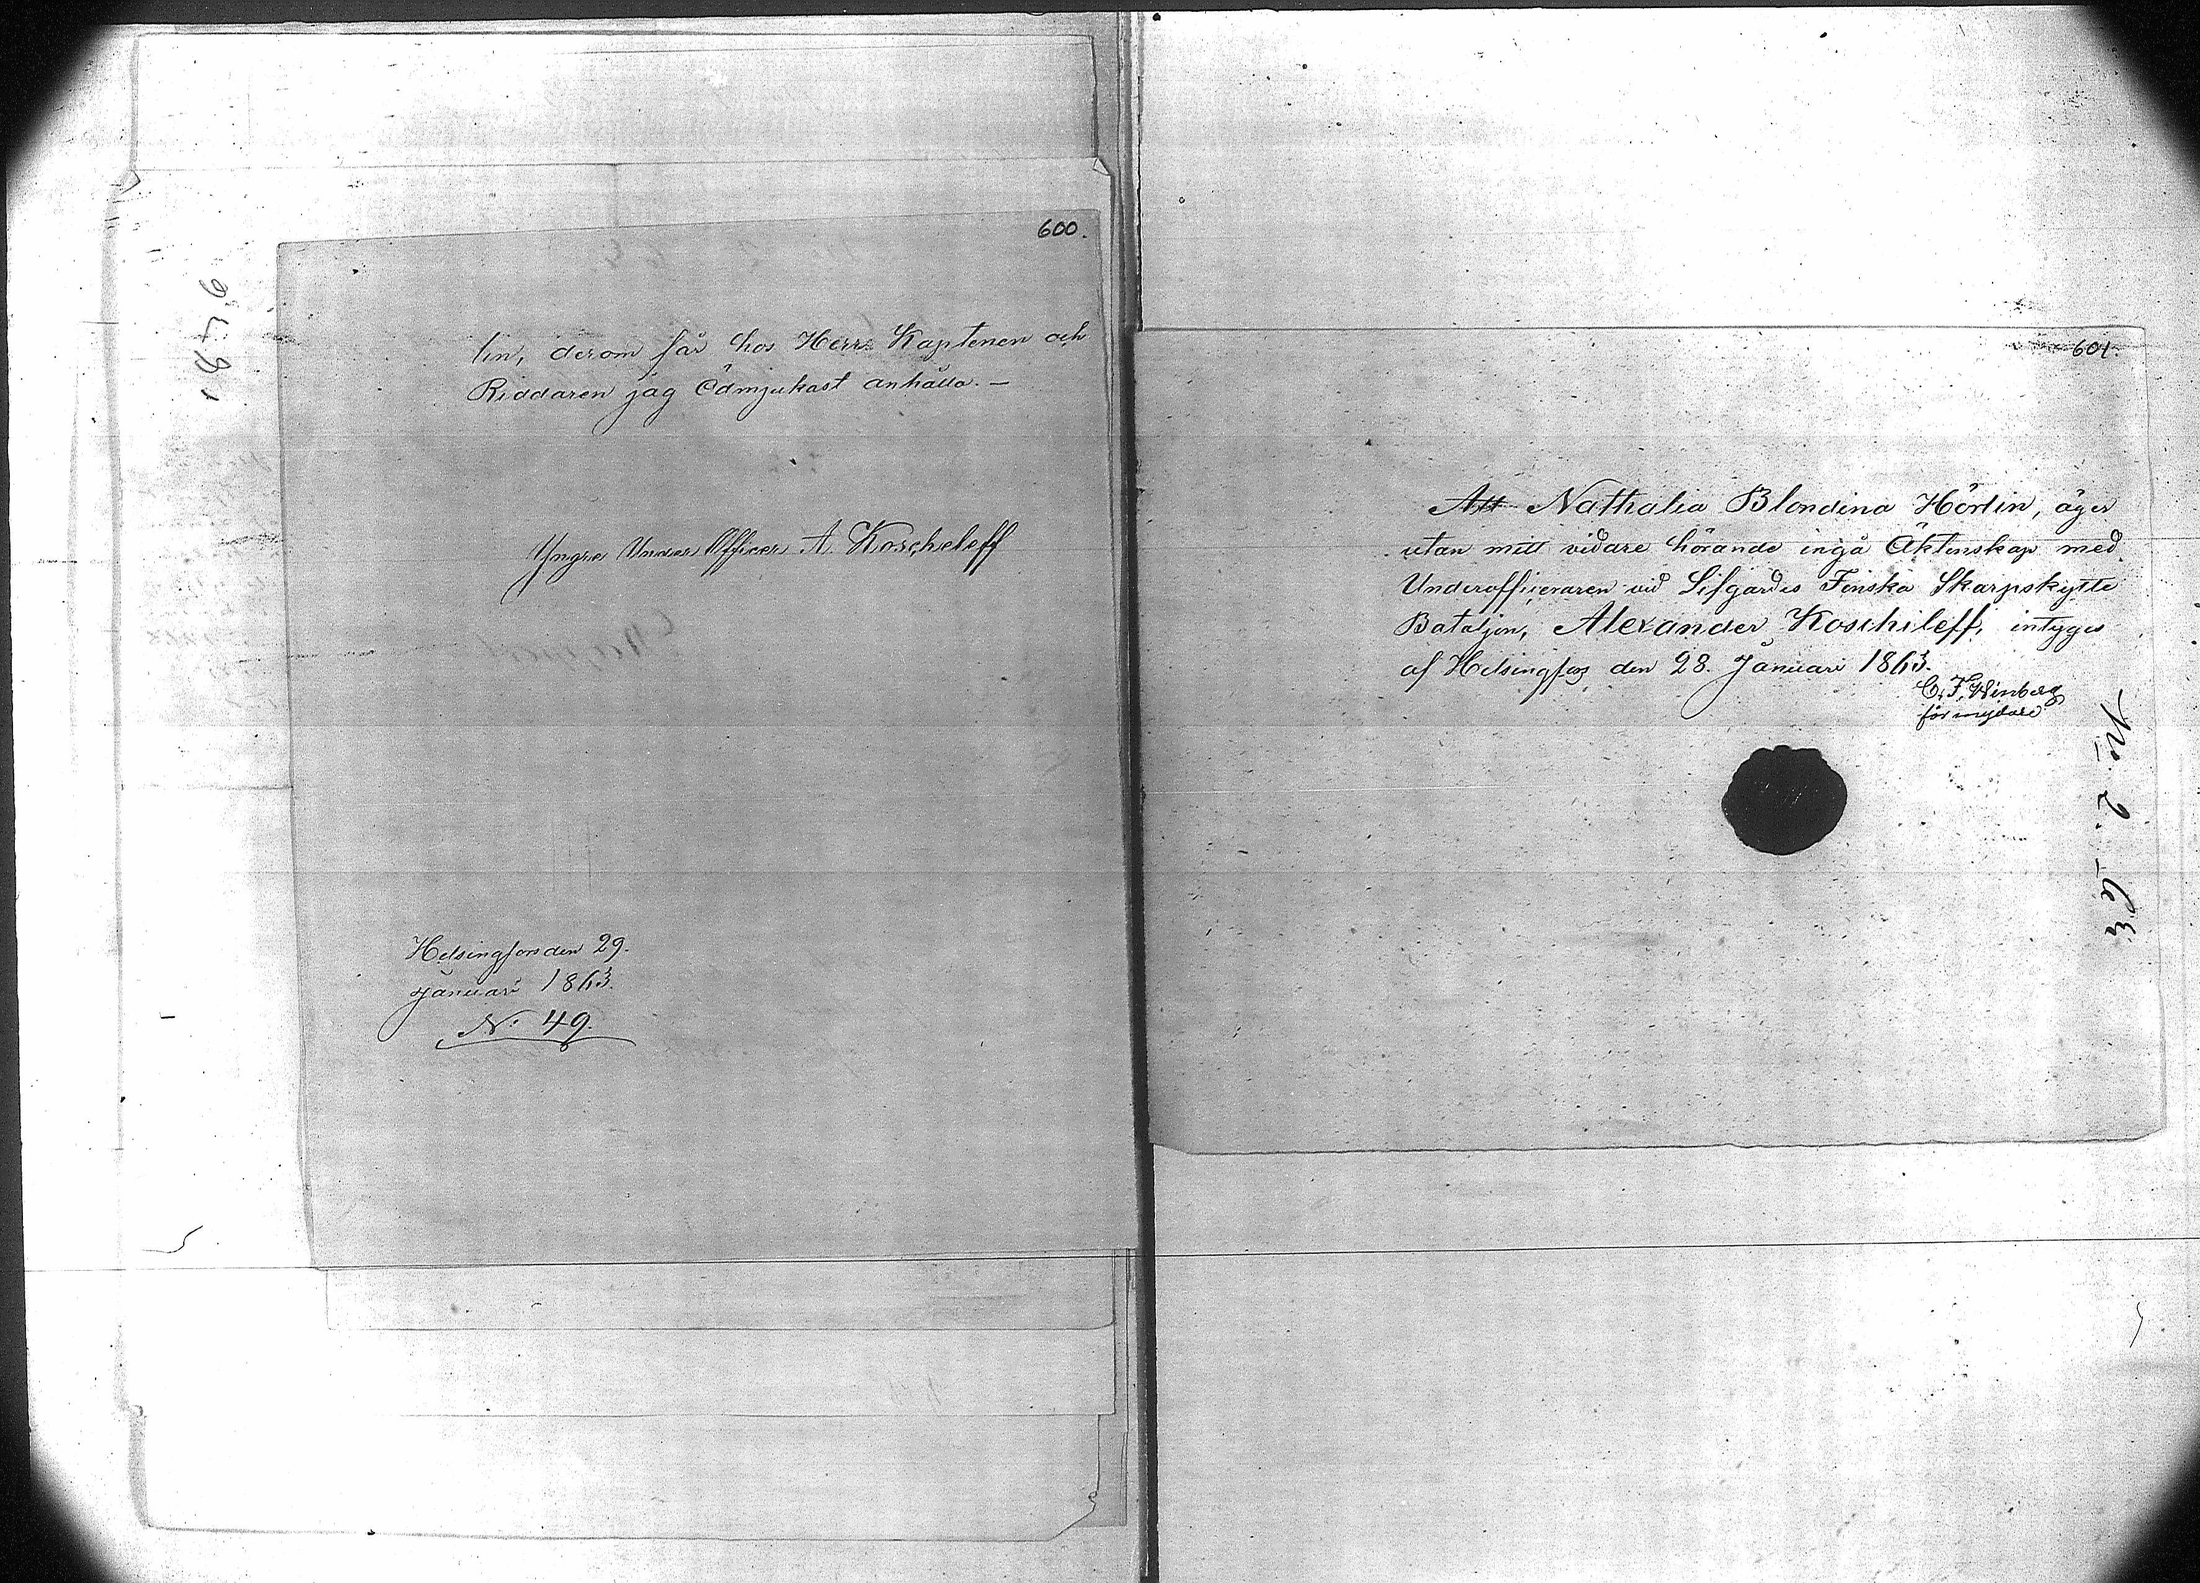 600.
lin, derom får hos Herr Kaptenen och
Riddaren jag Ödmjukast anhålla. —
Yngre Under Officer A. Koscheleff
Helsingfors den 29.
Januari 1863.
N: 49.
601.
Att Nathalia Blondina Hörlin, äger
utan mitt vidare hörande ingå Äktenskap med
Underofficeraren vid Lifgardes Finska Skarpskytte
Bataljon, Alexander Koschileff, intygas
af Helsingfors den 28. Januari 1863.
C. F. Winberg
förmyndare
No 2.